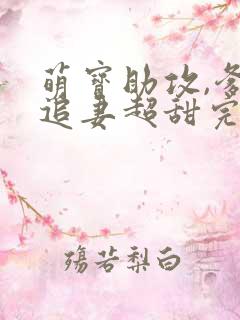 萌寶助攻,爹
追妻超甜完
殤若梨白